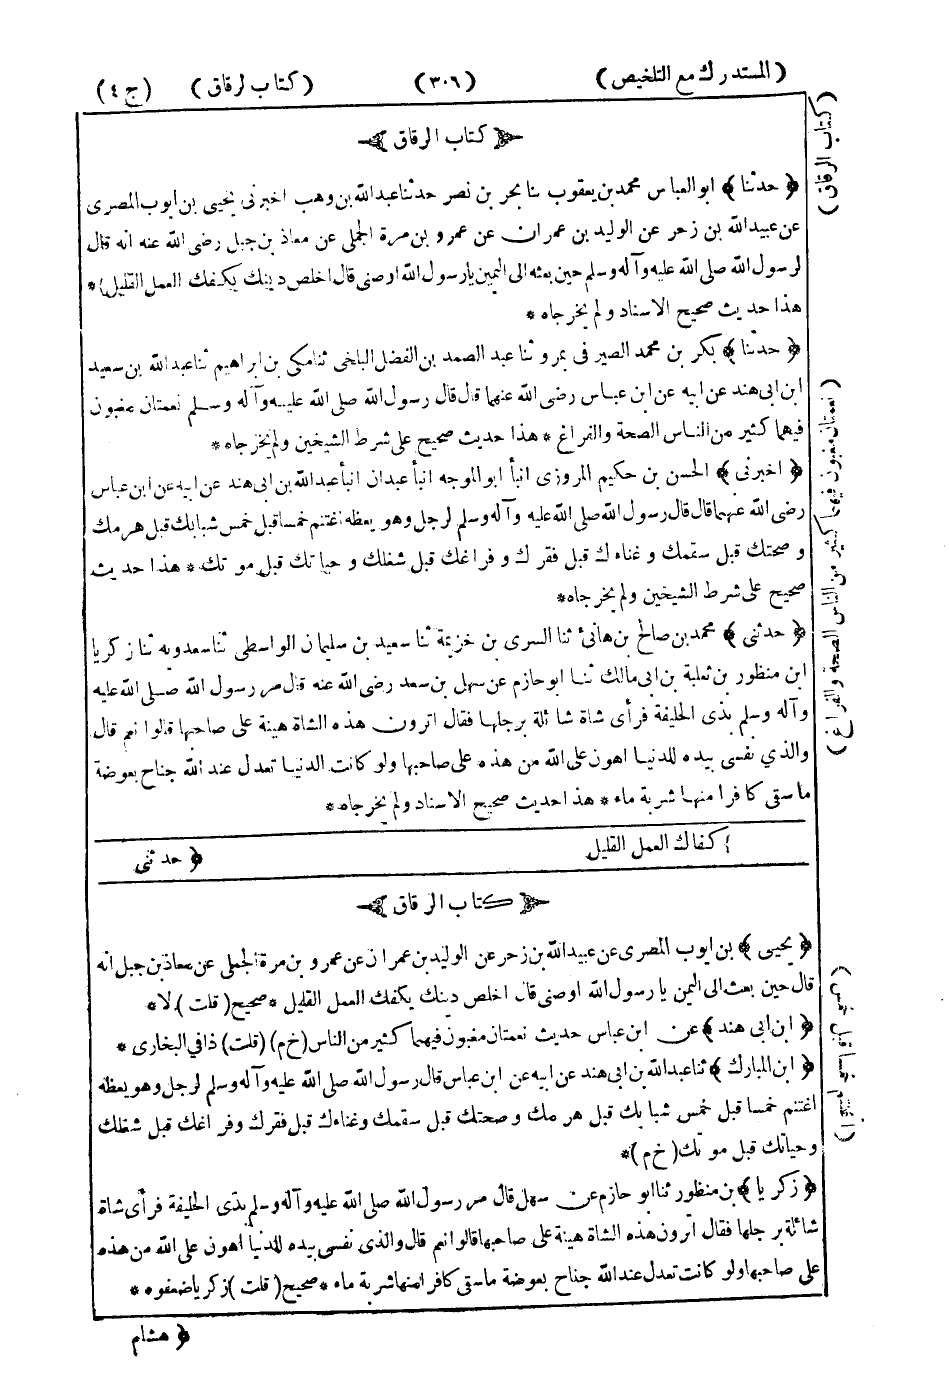 (المستدرك مع التلخيص) (٣٠٦) (كتاب لرقاق) (ج ٤)
كتاب الرقاق
﴿حدثنا﴾ ابو العباس محمد بن يعقوب ثنا بحر بن نصر حدثنا عبد الله بن وهب اخبرنى يحيى بن ايوب المصرى
عن عبيد الله بن زحر عن الوليد بن عمران عن عمرو بن مرة الجملى عن معاذ بن جبل رضى الله عنه انه قال
لرسول الله صلى الله عليه وآله وسلم حين بعثه الى اليمن يا رسول الله اوصنى قال اخلص دينك يكفك العمل القليل ١ *
هذا حديث صحيح الاسناد ولم يخرجاه *
﴿حدثنا﴾ بكر بن محمد الصيرفى بمرو ثنا عبد الصمد بن الفضل البلخى ثنا مكى بن ابراهيم ثنا عبد الله بن سعيد
ابن ابى هند عن ابيه عن ابن عباس رضى الله عنهما قال قال رسول الله صلى الله عليه وآله وسلم نعمتان مغبون
فيهما كثير من الناس الصحة والفراغ * هذا حديث صحيح على شرط الشيخين ولم يخرجاه *
﴿اخبرنى﴾ الحسن بن حكيم المروزى انبأ ابو الموجه انبأ عبدان انبأ عبد الله بن ابى هند عن ابيه عن ابن عباس
رضى الله عنهما قال قال رسول الله صلى الله عليه وآله وسلم لرجل وهو يعظه اغتنم خمسا قبل خمس شبابك قبل هرمك
وصحتك قبل سقمك وغناءك قبل فقرك وفراغك قبل شغلك وحياتك قبل موتك * هذا حديث
صحيح على شرط الشيخين ولم يخرجاه *
﴿حدثنى﴾ محمد بن صالح بن هانئ ثنا السرى بن خزيمة ثنا سعيد بن سليمان الواسطى ثنا سعدويه ثنا زكريا
ابن منظور بن ثعلبة بن ابى مالك ثنا ابو حازم عن سهل بن سعد رضى الله عنه قال مر رسول الله صلى الله عليه
وآله وسلم بذى الحليفة فرأى شاة شائلة برجلها فقال اترون هذه الشاة هينة على صاحبها قالوا نعم قال
والذي نفسى بيده للدنيا اهون على الله من هذه على صاحبها ولو كانت الدنيا تعدل عند الله جناح بعوضة
ما سقى كافرا منها شربة ماء * هذا حديث صحيح الاسناد ولم يخرجاه *
١ كفاك العمل القليل
﴿حدثنى
كتاب الرقاق
﴿يحيى﴾ بن ايوب المصرى عن عبيد الله بن زحر عن الوليد بن عمران عن عمرو بن مرة الجملى عن معاذ بن جبل انه
قال حين بعث الى اليمن يا رسول الله اوصنى قال اخلص دينك يكفك العمل القليل * صحيح (قلت) لا *
﴿ابن ابى هند﴾ عن ابن عباس حديث نعمتان مغبون فيهما كثير من الناس (خ م) (قلت) ذا في البخارى *
﴿ابن المبارك﴾ ثنا عبد الله بن ابى هند عن ابيه عن ابن عباس قال رسول الله صلى الله عليه وآله وسلم لرجل وهو يعظه
اغتنم خمسا قبل خمس شبابك قبل هرمك وصحتك قبل سقمك وغناءك قبل فقرك وفراغك قبل شغلك
وحياتك قبل موتك (خ م) *
﴿زكريا﴾ بن منظور ثنا ابو حازم عن سهل قال مر رسول الله صلى الله عليه وآله وسلم بذى الحليفة فرأى شاة
شائلة برجلها فقال اترون هذه الشاة هينة على صاحبها قالوا نعم قال والذى نفسى بيده للدنيا اهون على الله من هذه
على صاحبها ولو كانت تعدل عند الله جناح بعوضة ما سقى كافرا منها شربة ماء * صحيح (قلت) زكريا ضعفوه *
﴿هشام
(كتاب الرقاق)
(نعمتان مغبون فيهما كثير من الناس الصحة والفراغ)
(اغتنم خمسا قبل خمس)